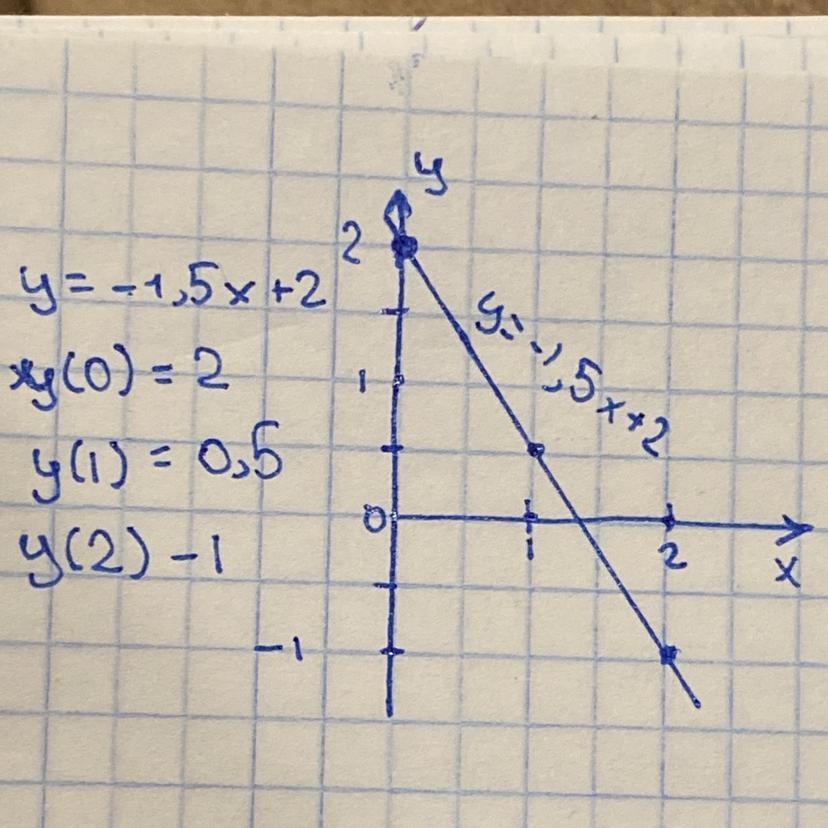 y
2
y = -1,5x + 2
y = -1,5x + 2
y(0) = 2
1
y(1) = 0,5
0
y(2) - 1
1
2
x
-1